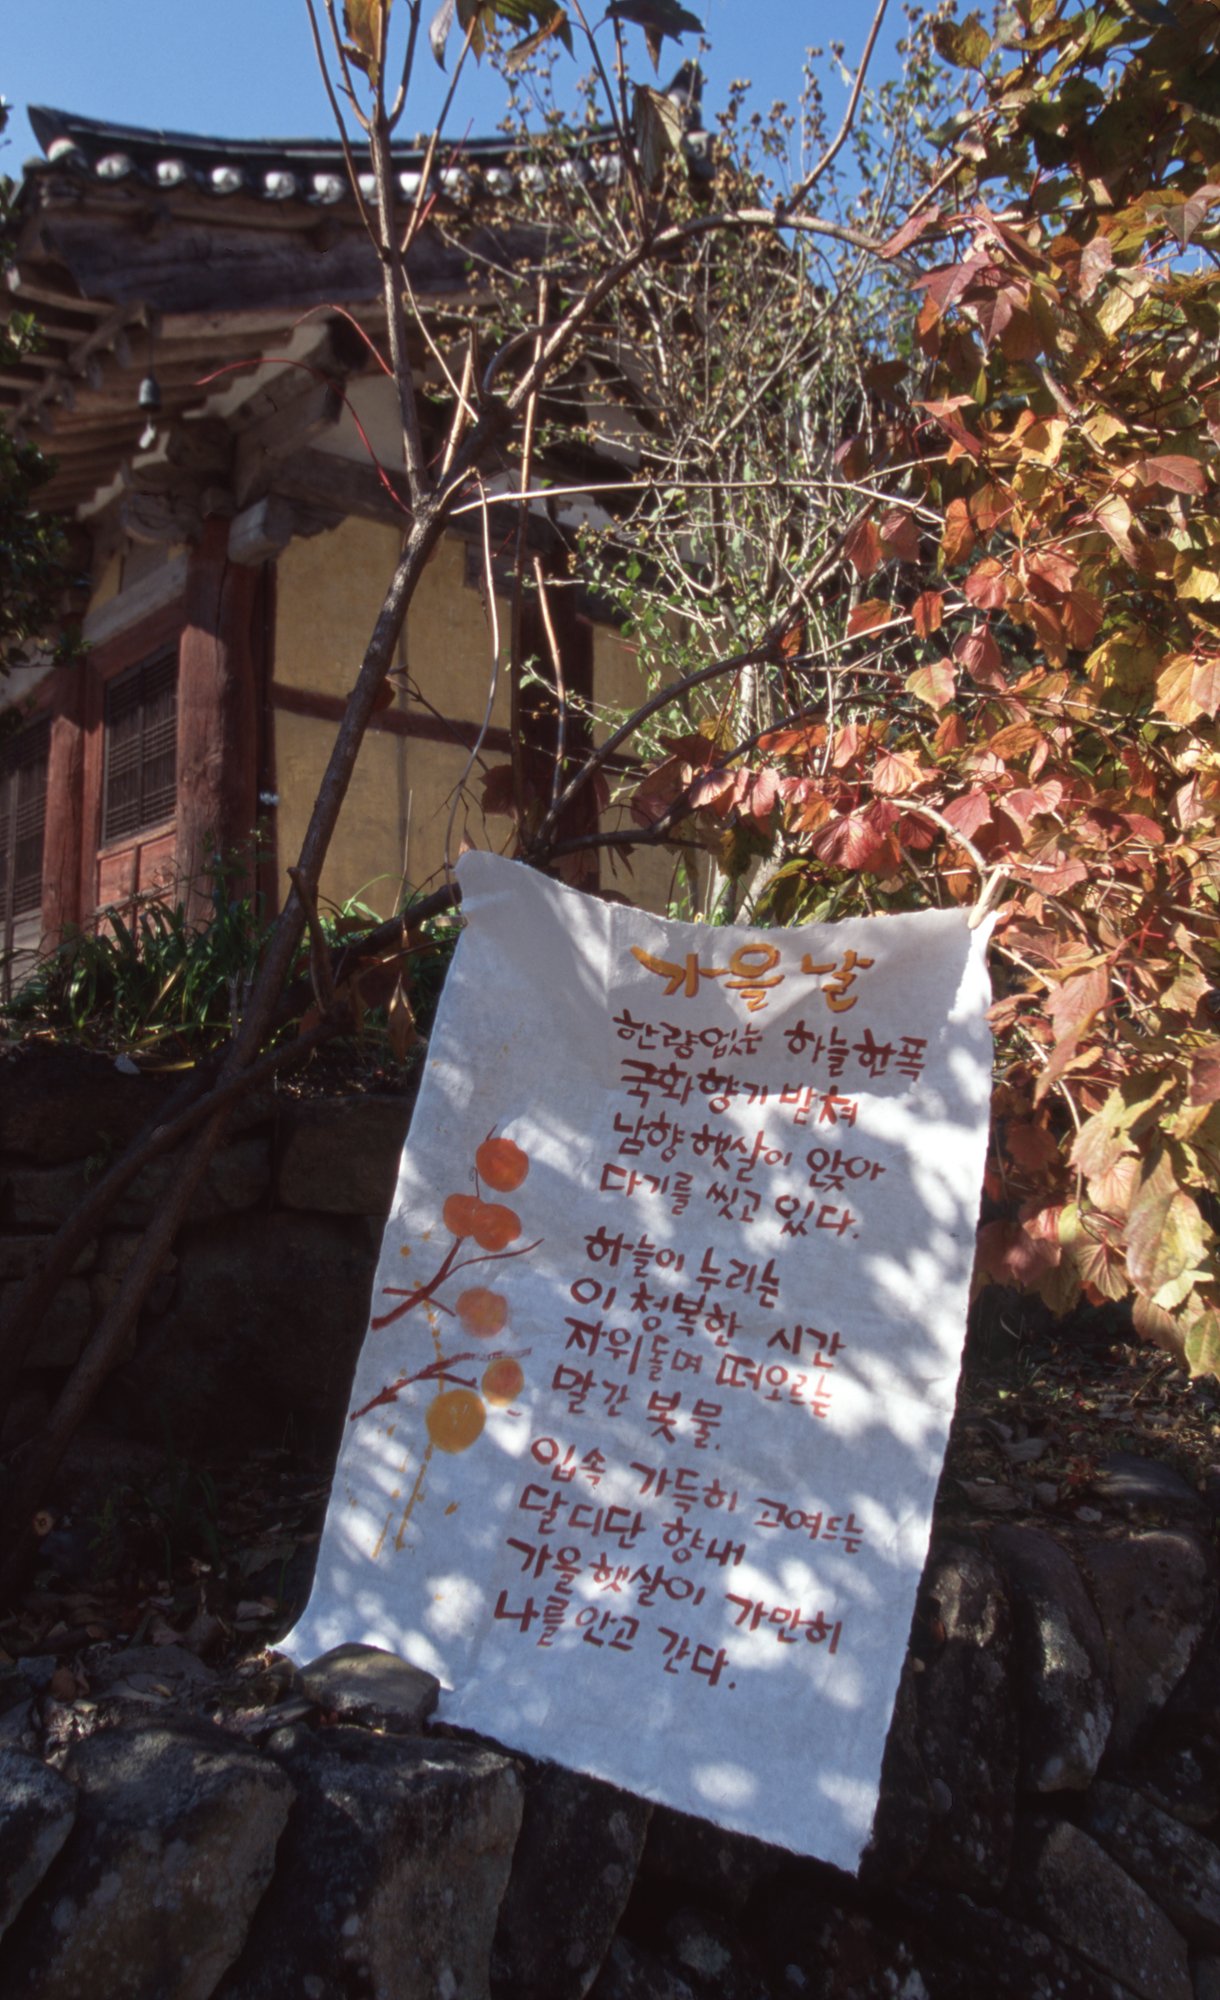 가을 날
한량없는 하늘 한폭
국화향기 받쳐
남향 햇살이 앉아
다기를 씻고 있다.
하늘이 누리는
이 청복한 시간
자위돌며 떠오르는
말간 봇물.
입속 가득히 고여드는
달디단 향내
가을 햇살이 가만히
나를 안고 간다.